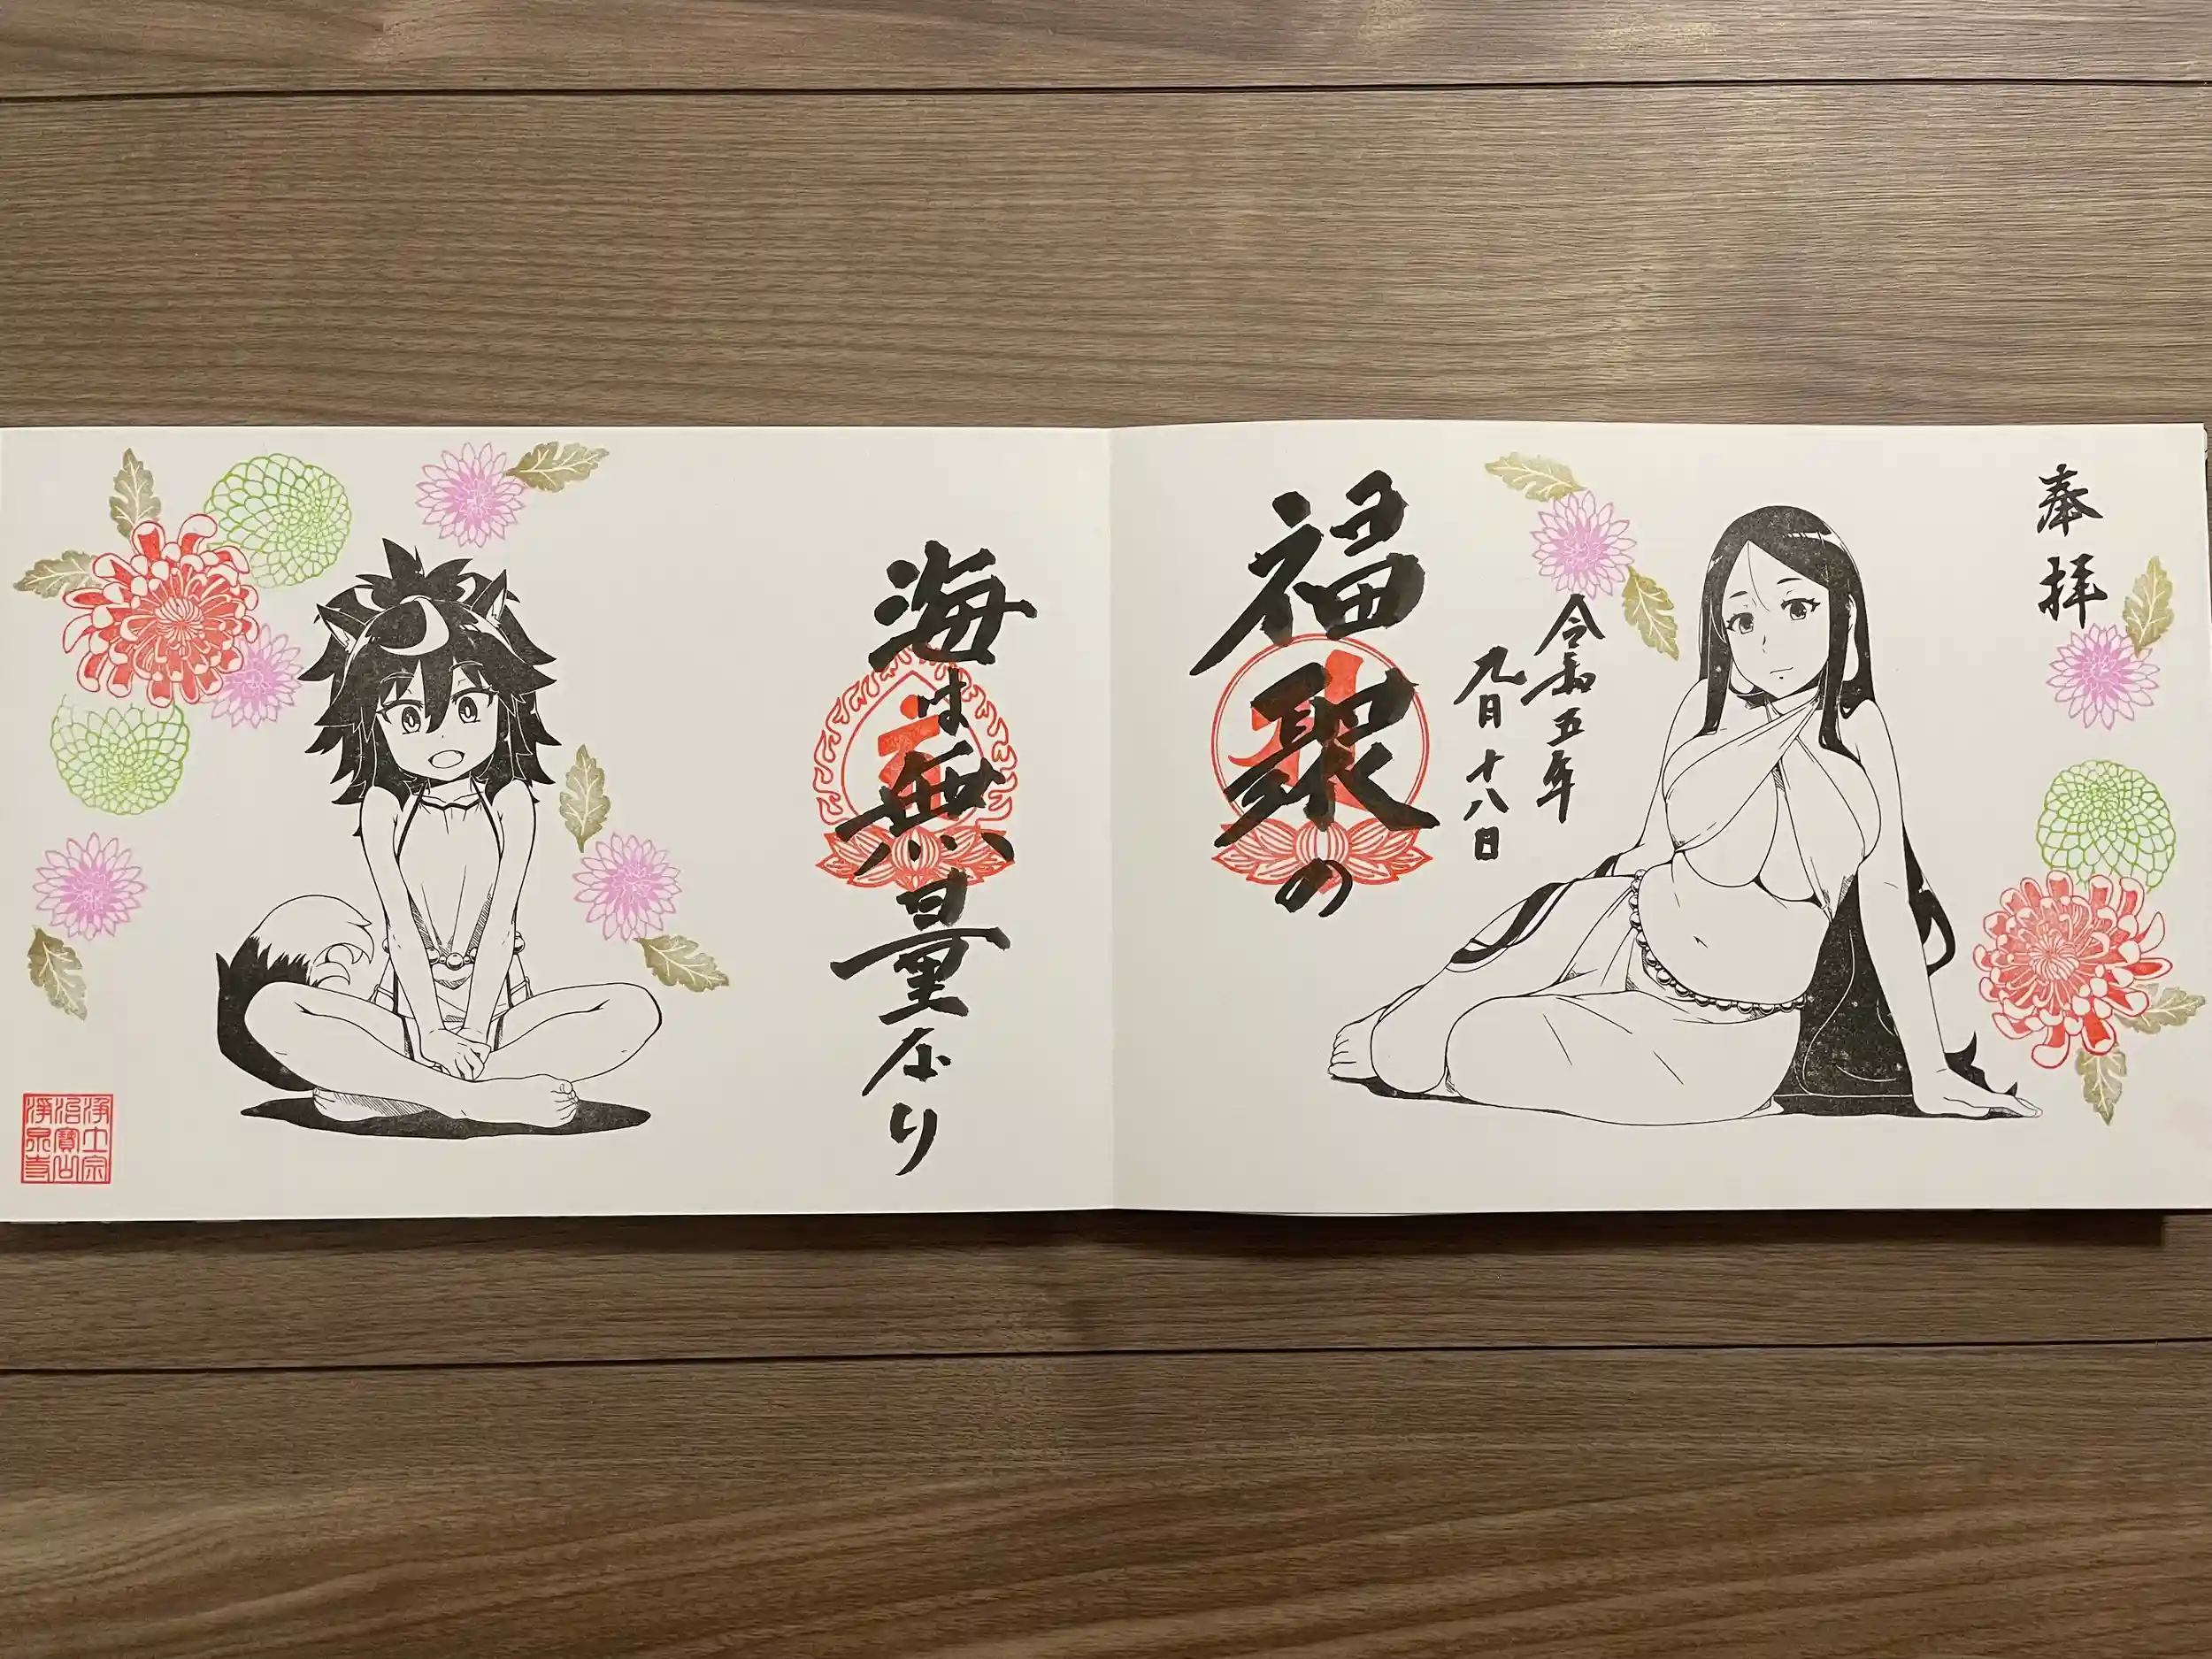 奉拝
令和五年
九月十八日
福聚の
海は無量なり
浄土宗
治寳山
浄泉寺